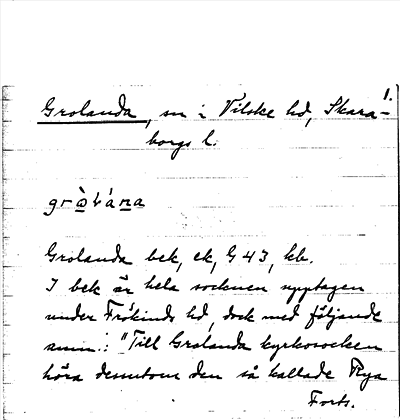 1.
Grolanda, sn i Vilske hd, Skara-
borgs l.
gròlána
Grolanda bek, ek, G 43, kb.
I bek är hela socknen upptagen
under Frökinds hd, dock med följande
anm.: "Till Grolanda kyrkosocken
höra dessutom den så kallade Rya
Forts.